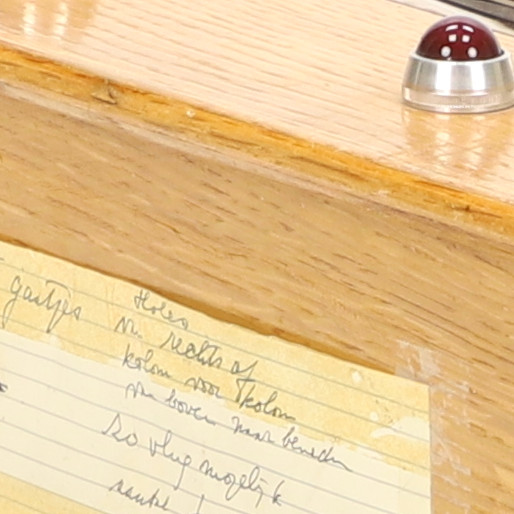 gaatjes
Holes
van rechts af
kolom voor kolom
van boven naar beneden
zo vlug mogelijk